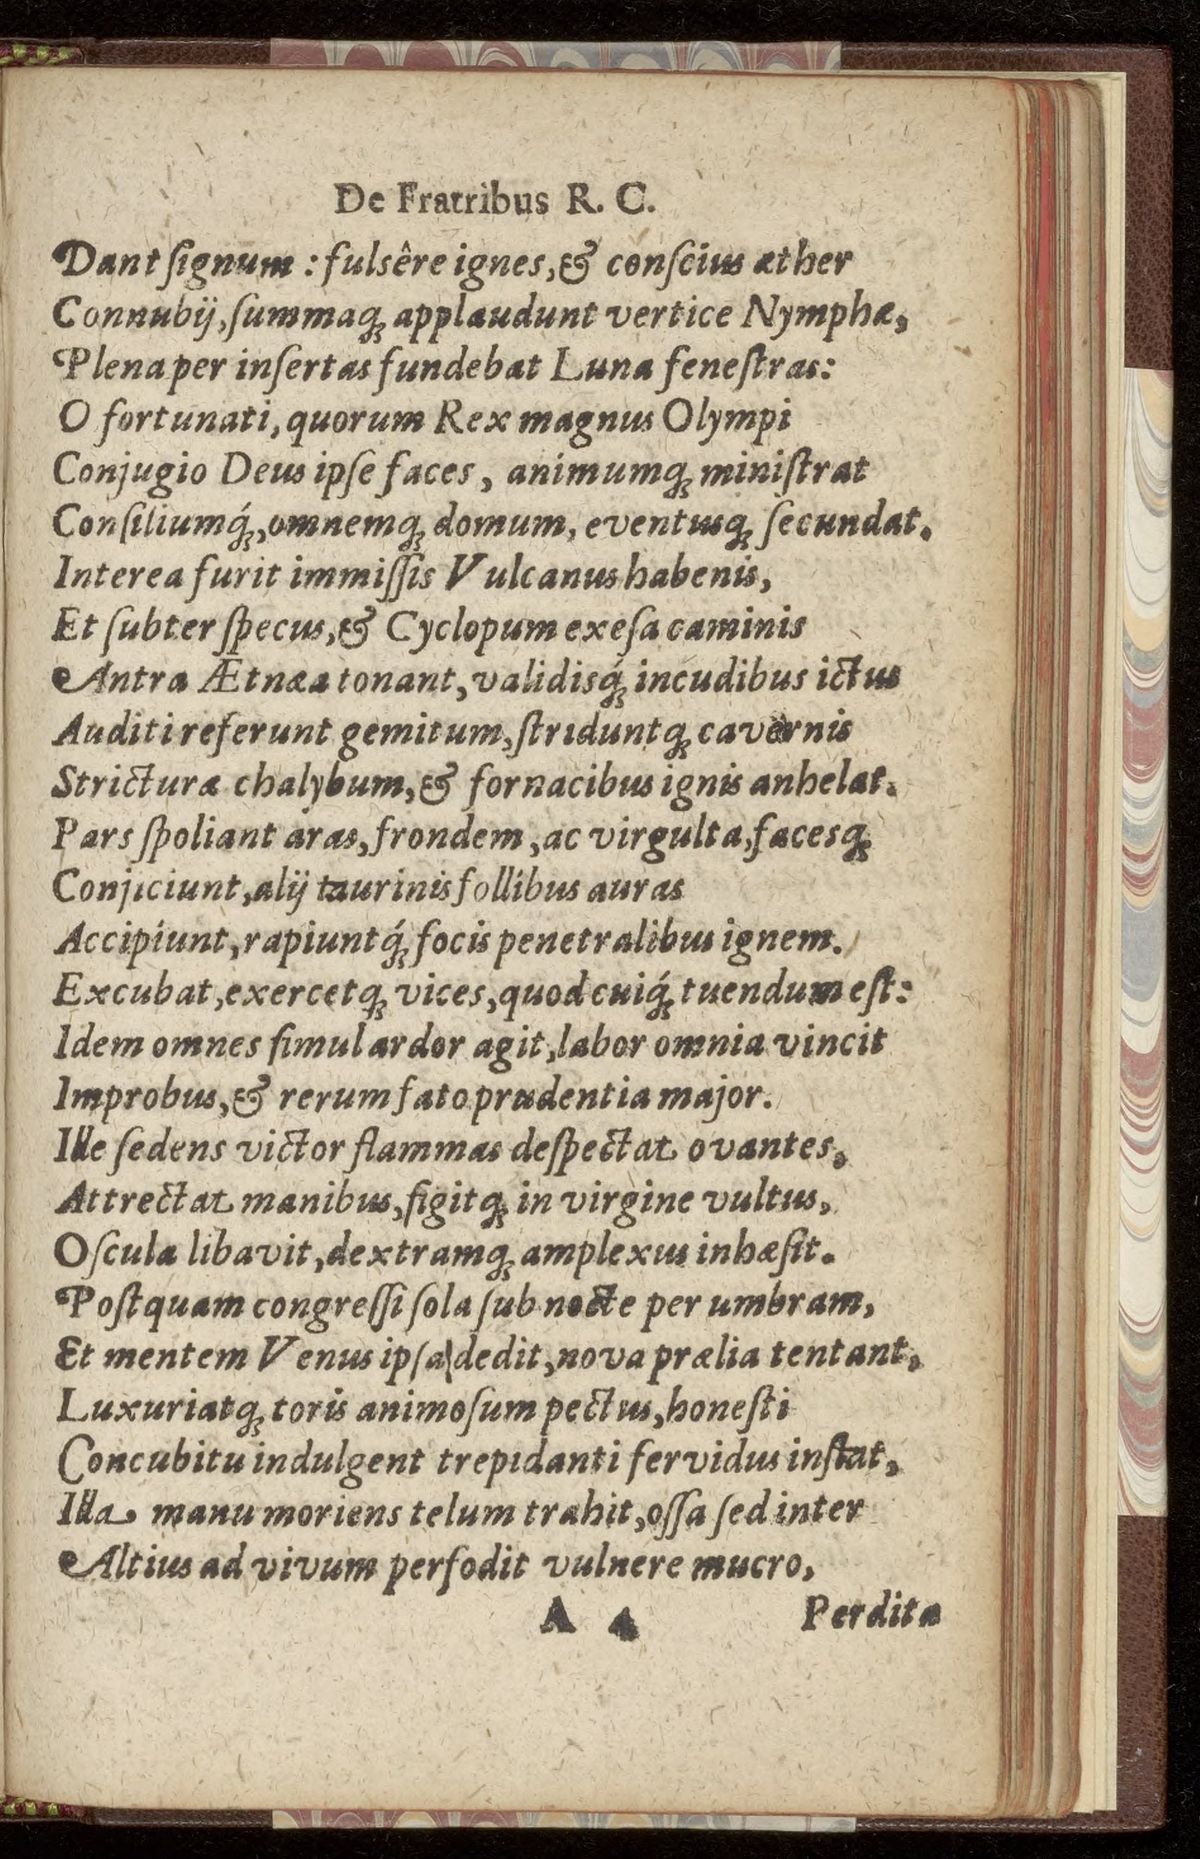 De Fratribus R. C.
Dant ſignum : fulsêre ignes, & conſcius æther
Connubij, ſummaq; applaudunt vertice Nymphæ,
Plena per inſertas fundebat Luna feneſtras:
O fortunati, quorum Rex magnus Olympi
Conjugio Deus ipſe faces, animumq; miniſtrat
Conſiliumq́;, omnemq; domum, eventusq; ſecundat.
Interea furit immiſſis Vulcanus habenis,
Et ſubter ſpecus, & Cyclopum exeſa caminis
Antra Ætnæa tonant, validisq́; incudibus ictus
Auditi referunt gemitum, ſtriduntq; cavernis
Stricturæ chalybum, & fornacibus ignis anhelat.
Pars ſpoliant aras, frondem, ac virgulta, facesq;
Conjiciunt, alij taurinis follibus auras
Accipiunt, rapiuntq́; focis penetralibus ignem.
Excubat, exercetq; vices, quod cuiq́; tuendum eſt:
Idem omnes ſimul ardor agit, labor omnia vincit
Improbus, & rerum fato prudentia major.
Ille ſedens victor flammas deſpectat ovantes,
Attrectat manibus, figitq; in virgine vultus,
Oſcula libavit, dextramq; amplexus inhæſit.
Poſtquam congreſſi ſola ſub nocte per umbram,
Et mentem Venus ipſa dedit, nova prælia tentant,
Luxuriatq; toris animoſum pectus, honeſti
Concubitu indulgent trepidanti fervidus inſtat,
Illa manu moriens telum trahit, oſſa ſed inter
Altius ad vivum perfodit vulnere mucro,
A 4 Perdita